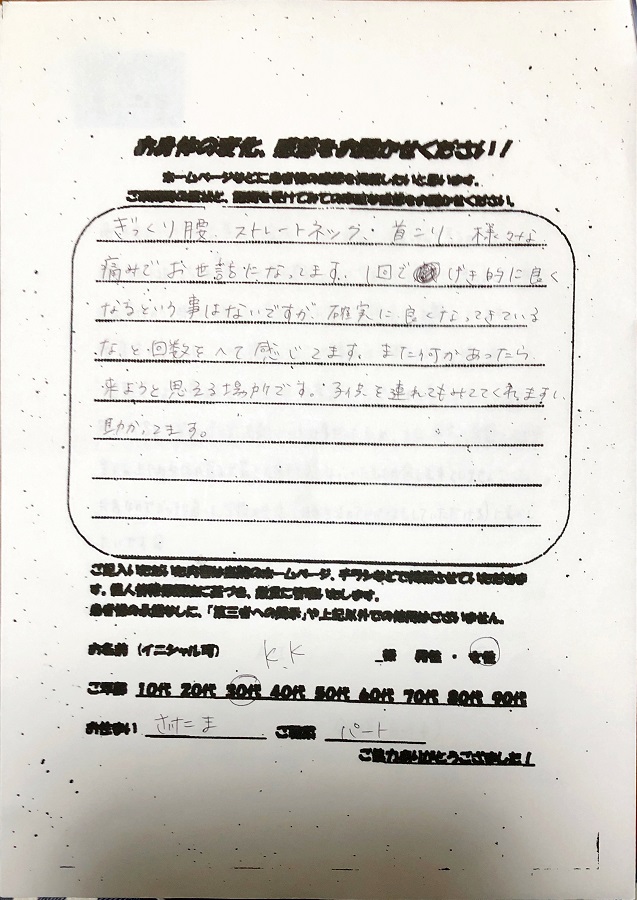 お身体の変化、感想をお聞かせください！
ホームページなどに患者様の感想を掲載したいと思います。
ご来院時の症状と、施術を受けてみての率直な感想をお聞かせください。
ぎっくり腰 ストレートネック、首こり 様々な
痛みでお世話になってます。1回で げき的に良く
なるという事はないですが、確実に良くなってきている
な、と回数をへて感じてます。また何かあったら
来ようと思える場所です。子供を連れてもみててくれますし
助かってます。
ご記入いただいた内容は当院のホームページ、チラシなどで掲載させていただきま
す。個人情報保護法に基づき、厳重に管理いたします。
患者様の承諾なしに、「第三者への開示」や上記以外での使用はございません。
お名前（イニシャル可） K.K 様 男性 ・ 女性
ご年齢 10代 20代 30代 40代 50代 60代 70代 80代 90代
お住まい さいたま ご職業 パート
ご協力ありがとうございました！